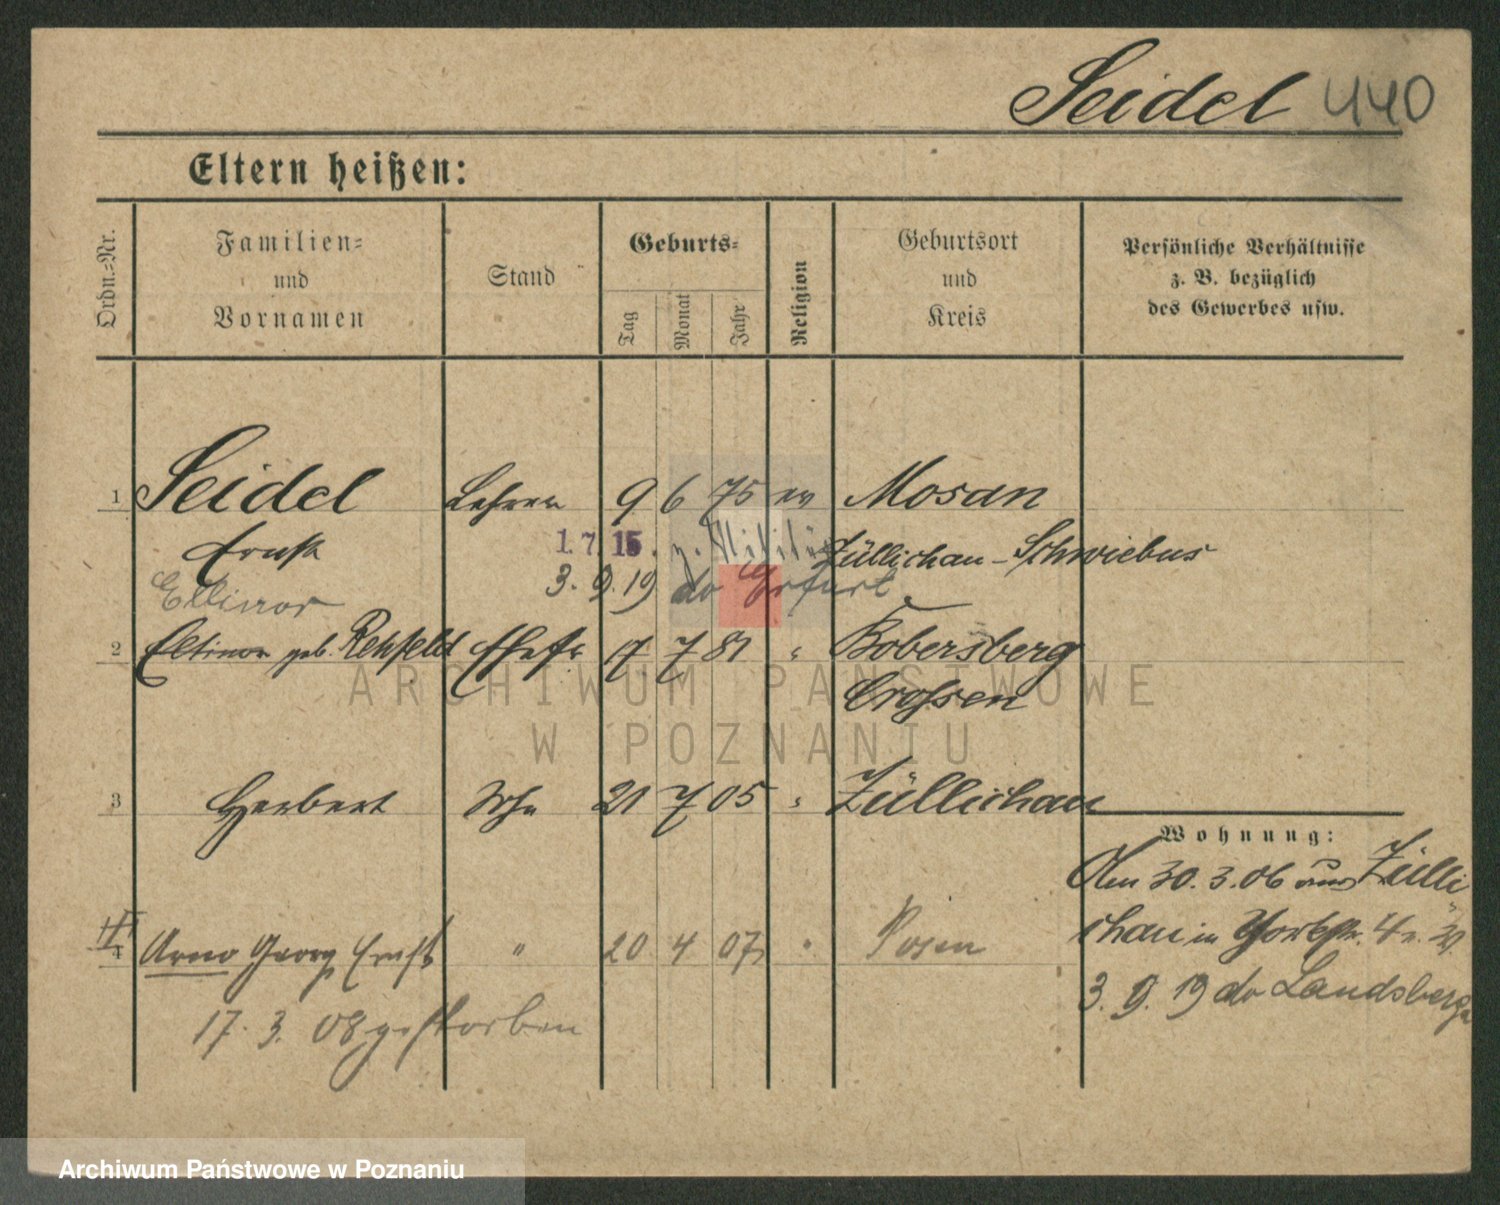 Seidel 440
Eltern heißen:
Ordn.=Nr.
Familien=
und
Vornamen
Stand
Geburts=
Tag
Monat
Jahr
Religion
Geburtsort
und
Kreis
Persönliche Verhältnisse
z. B. bezüglich
des Gewerbes usw.
1 Seidel Lehrer 9 6 75 ev Mosau
Ernst 1.7.15. z. Militär Züllichau-Schwiebus
Ellinor 3. 9. 19 do Erfurt
2 geb. Rehfeld Ehefr 17 7 81 " Bobersberg
Crossen
3 Herbert Sohn 21 7 05 " Züllichau
Wohnung:
Am 30. 3. 06 aus Zülli
chau in Yorkstr. 4
4 Arno Georg Ernst " 20 4 07 " Posen
3. 9. 19 do Landsberg
17. 3. 08 gestorben
ARCHIWUM PAŃSTWOWE
W POZNANIU
Archiwum Państwowe w Poznaniu